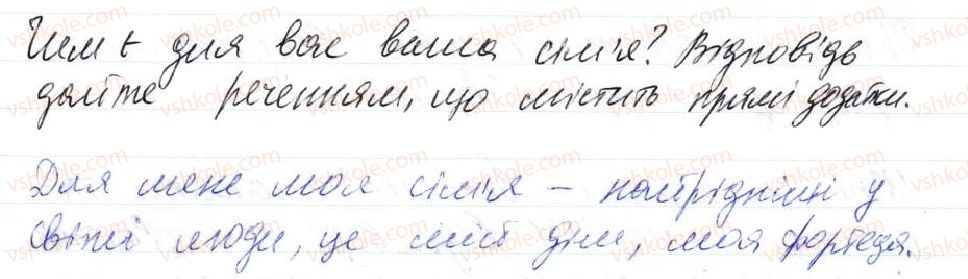 Чим є для вас ваша сім'я? Відповідь
дайте реченням, що містить прямі додатки.
Для мене моя сім'я – найрідніші у
світі люди, це мій дім, моя фортеця.